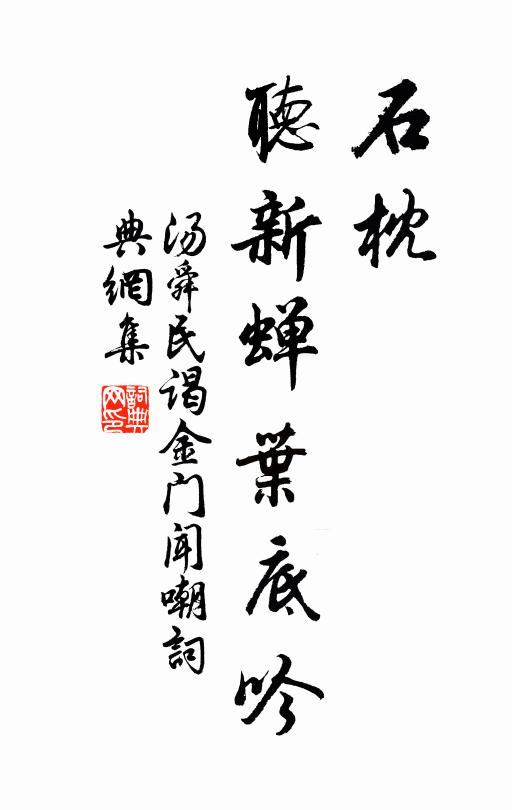 石枕
聽新蝉葉底吟
汤舜民谒金门闻嘲詞
典網集
詞典
网印